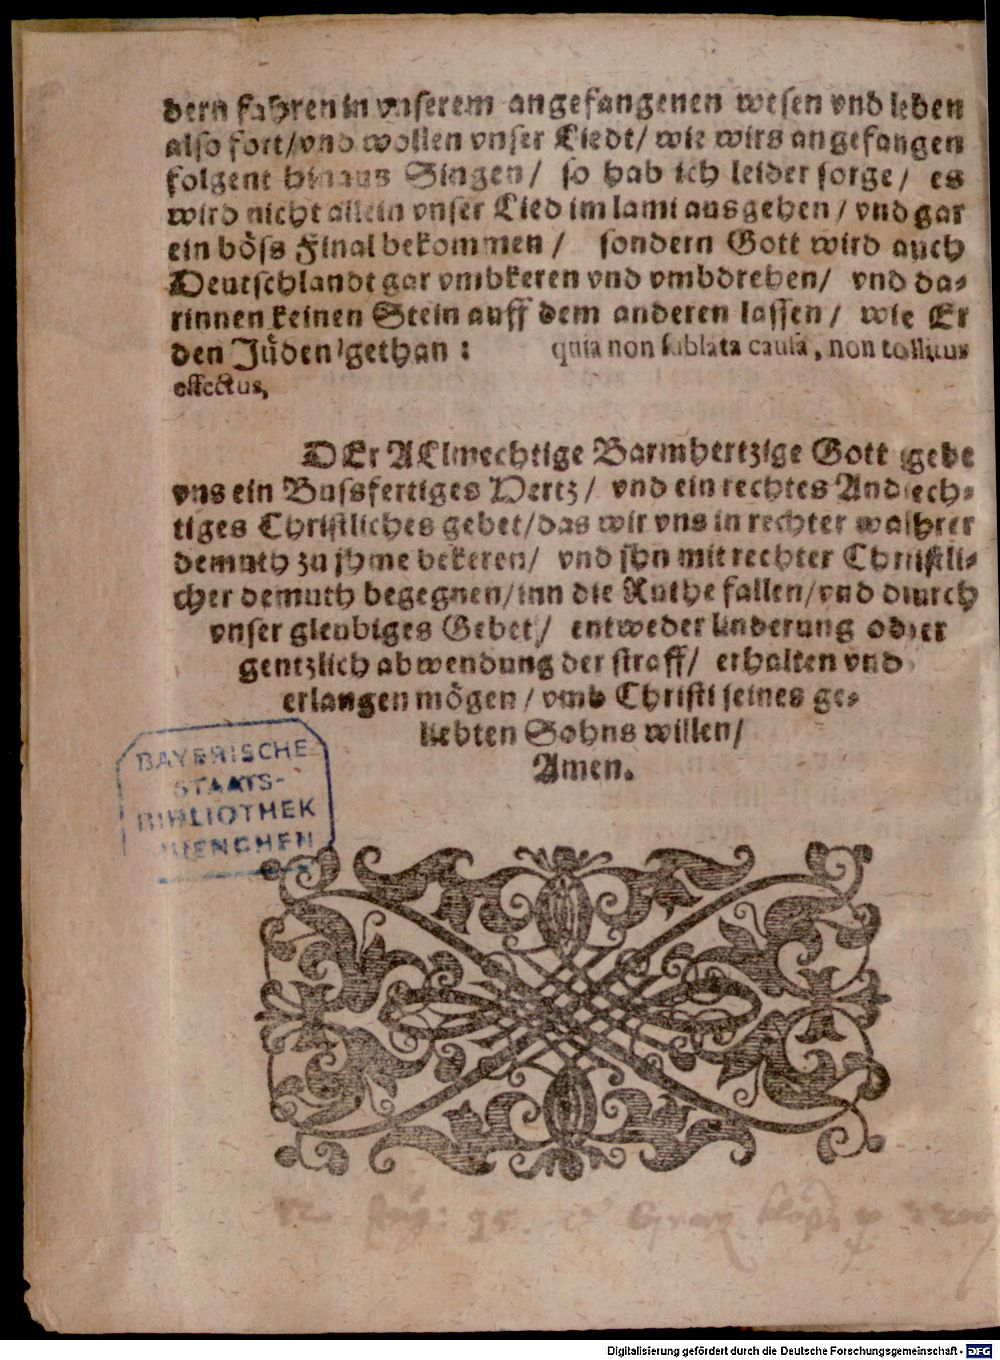 dern fahren in vnserem angefangenen wesen vnd leben
also fort/vnd wollen vnser Liedt/ wie wirs angefangen
folgent hinaus Singen/ so hab ich leider sorge/ es
wird nicht allein vnser Lied im lami ausgehen/ vnd gar
ein böss Final bekommen/ sondern Gott wird auch
Deutschlandt gar vmbkeren vnd vmbdrehen/ vnd da-
rinnen keinen Stein auff dem anderen lassen/ wie Er
den Jüden gethan: quia non sublata causa, non tollitur
effectus,
DEr ALlmechtige Barmhertzige Gott gebe
vns ein Bussfertiges Hertz/ vnd ein rechtes Andech-
tiges Christliches gebet/das wir vns in rechter waihrer
demuth zu jhme bekeren/ vnd jhn mit rechter Christli-
cher demuth begegnen/inn die Ruthe fallen/vnd durch
vnser gleubiges Gebet/ entweder linderung oder
gentzlich abwendung der straff/ erhalten vnd
erlangen mögen/vmb Christi seines ge-
liebten Sohns willen/
Amen.
BAYERISCHE
STAATS-
BIBLIOTHEK
MUENCHEN
Digitalisierung gefördert durch die Deutsche Forschungsgemeinschaft - DFG